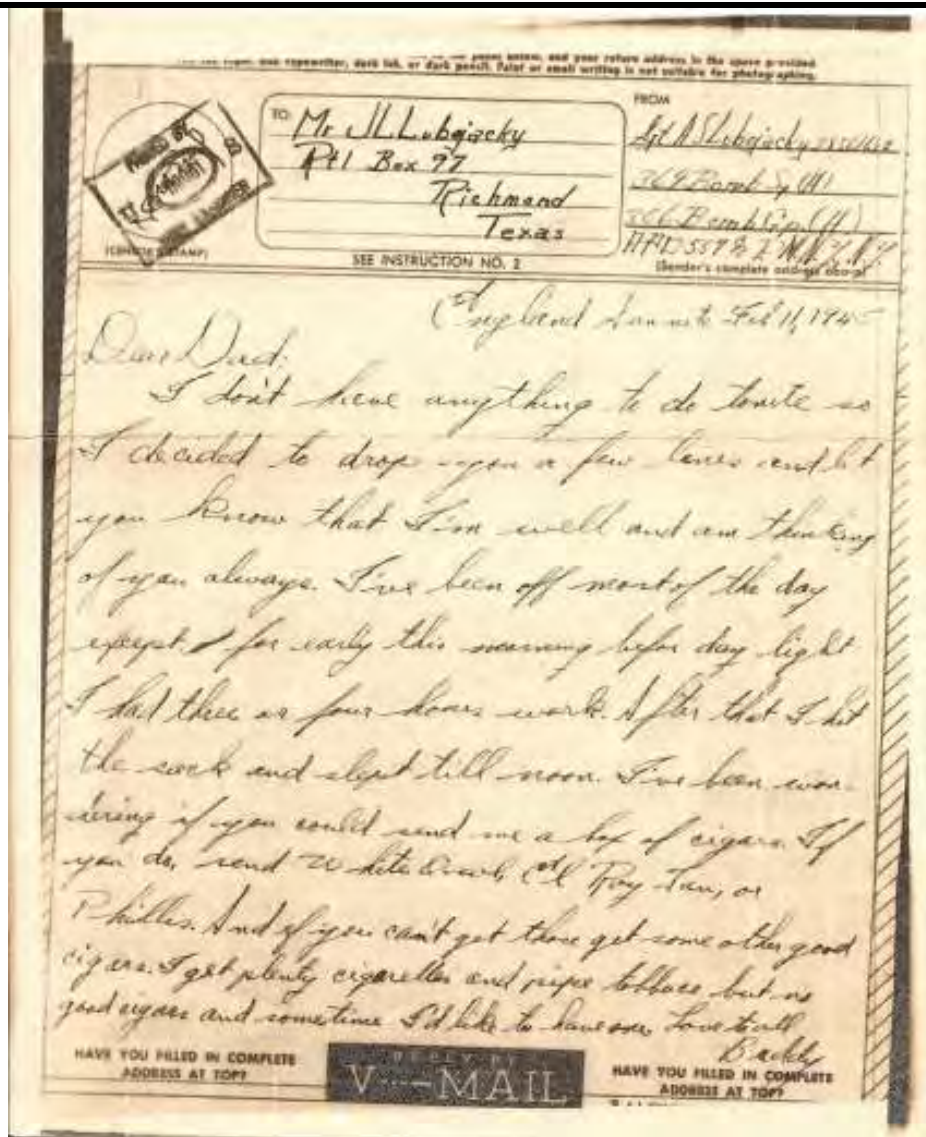 and your return address in the space provided
typewriter, dark ink, or dark pencil. Faint or small writing is not suitable for photographing.
PASSED BY
(CENSOR'S STAMP)
TO:
Mr J L Lubojacky
Rt 1 Box 97
Richmond
Texas
SEE INSTRUCTION NO. 2
FROM
Sgt A S Lubojacky
369 Bomb Sq (H)
306 Bomb Gp. (H)
APO 557 % P.M. N.Y. N.Y.
(Sender's complete address above)
England Feb 11, 194
Dear Dad:
I don't have anything to do tonite so
I decided to drop you a few lines and let
you know that I'm well and am thinking
of you always. I've been off most of the day
except for early this morning befor day light
I had three or four hours work. After that I hit
the sack and slept till noon. I've been won-
dering if you could send me a box of cigars. If
you do, send White Owls, El Roy Tan, or
Phillies. And if you can't get those get some other good
cigars. I get plenty cigarettes and pipe tobbaco but no
good cigars and sometime I'd like to have one. Love to all
Buddy
HAVE YOU FILLED IN COMPLETE
ADDRESS AT TOP?
REPLY BY
V···—MAIL
HAVE YOU FILLED IN COMPLETE
ADDRESS AT TOP?